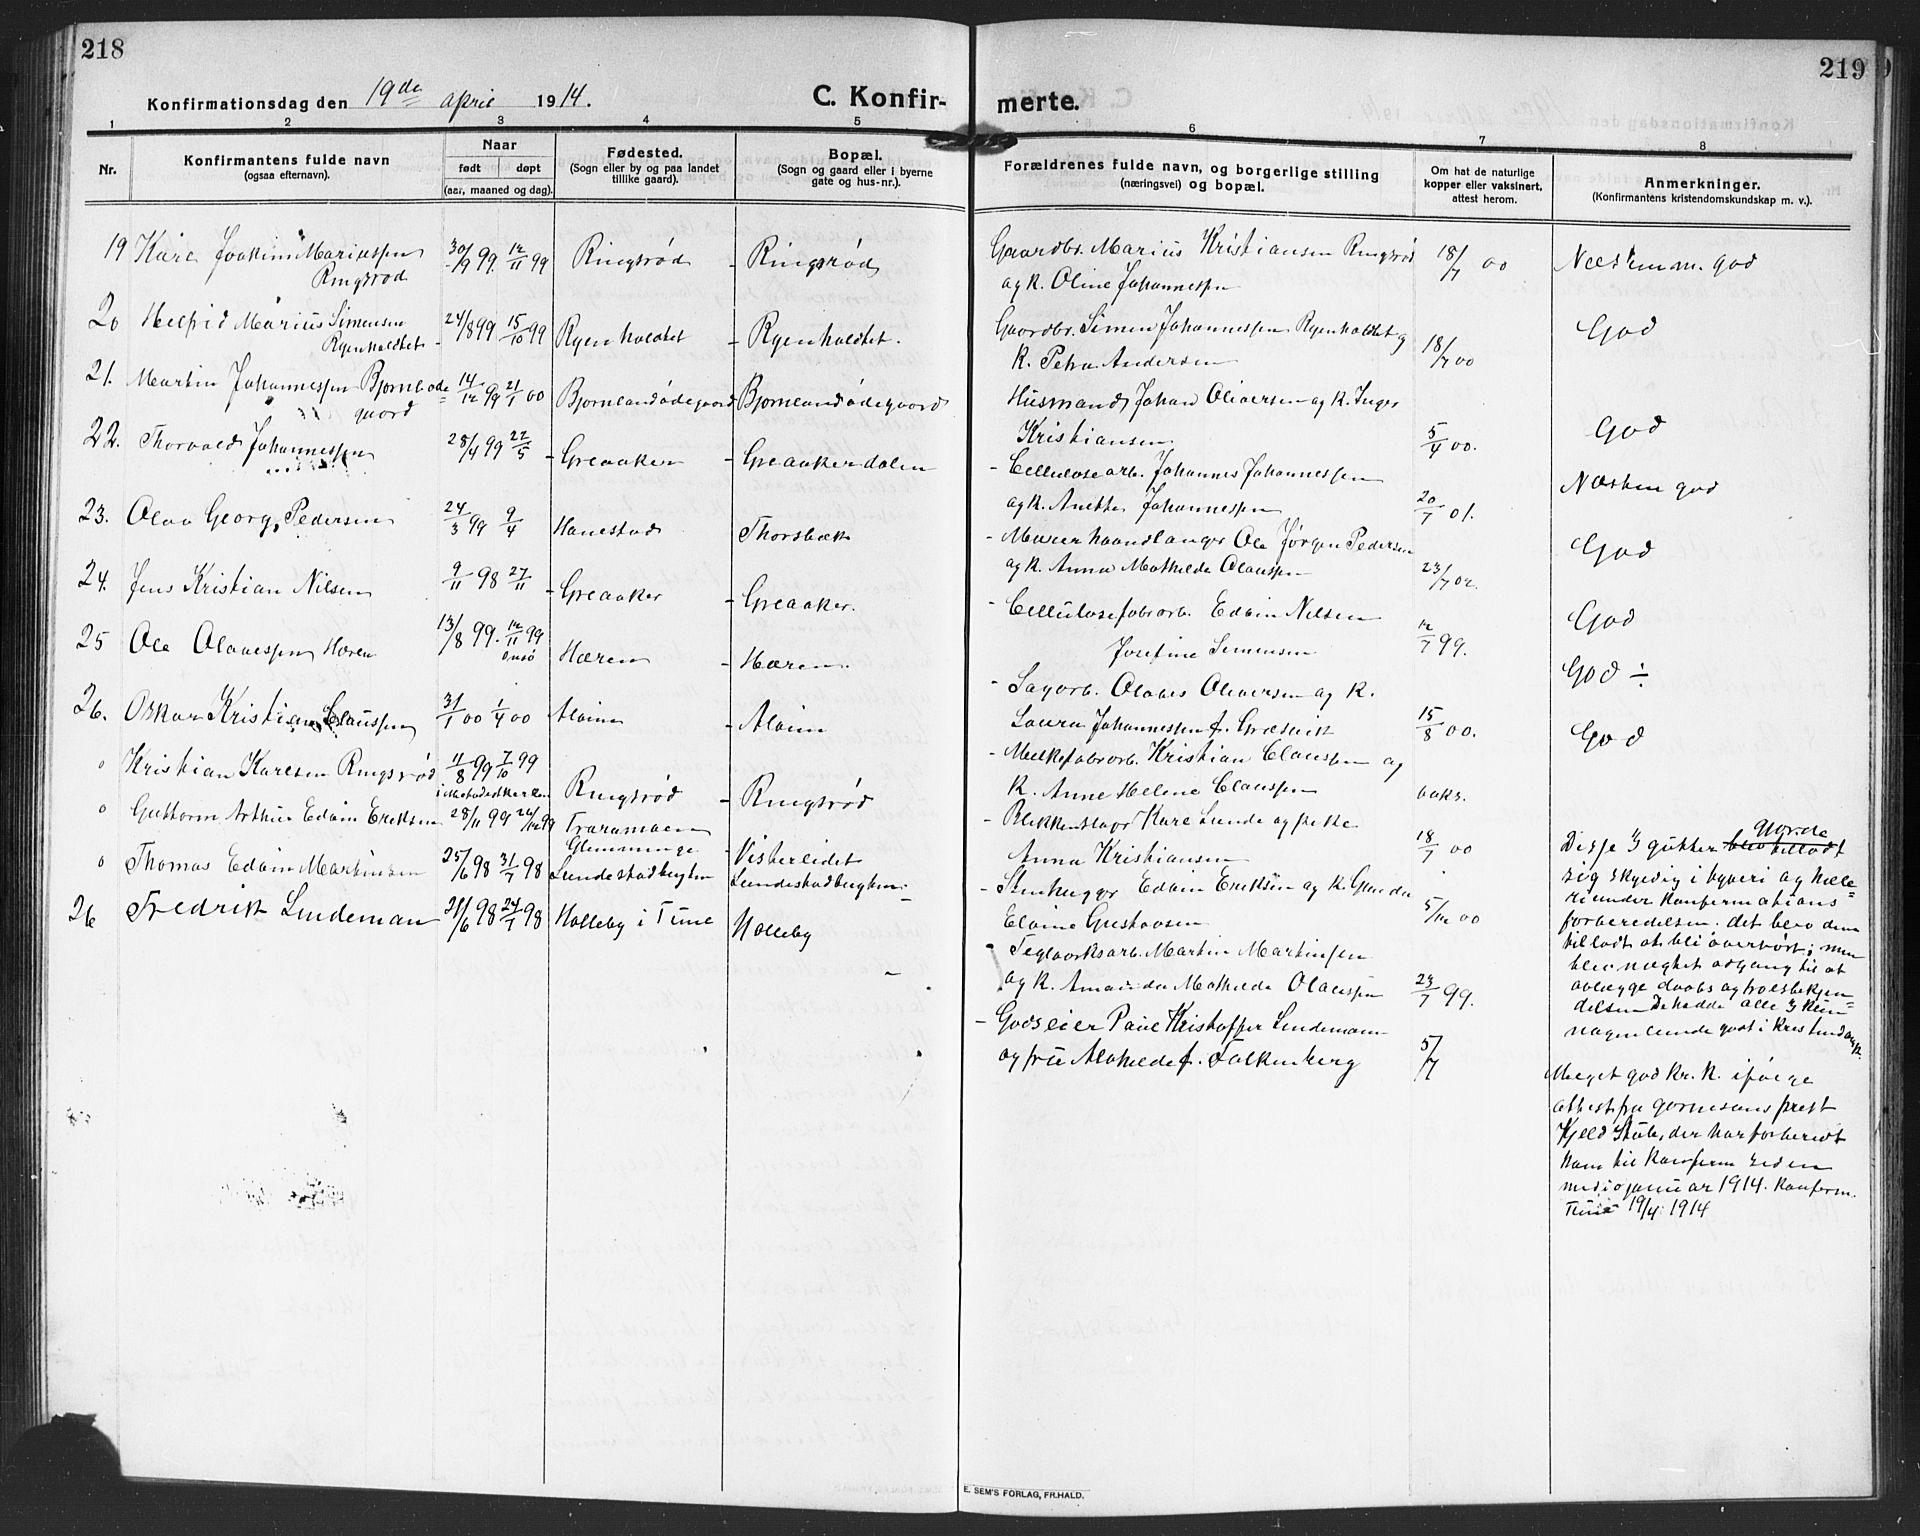 218
Konfirmationsdag den 19de april 1914.
C. Konfir-
1 2 3 4 5
Nr.
Konfirmantens fulde navn
(ogsaa efternavn).
Naar
født døpt
(aar, maaned og dag).
Fødested.
(Sogn eller by og paa landet
tillike gaard).
Bopæl.
(Sogn og gaard eller i byerne
gate og hus-nr.).
19 Kåre Joakim Mariussen 30/9 99. 12/11 99 Ringsrød - Ringsrød
Ringsrød
20 Helfrid Marius Simensen 24/8 99 15/10 99 Ryenholdtet - Ryenholdtet.
Ryenholdtet
21. Martin Johannessen Bjørnlande= 14/12 99 21/1 00 Bjørnlandødegaard Bjørnlandødegaard
gaard
22. Thorvald Johannessen 28/4 99 22/5 - Greaaker - Greaakerdalen
23. Olav Georg Pedersen 24/3 99 9/4 Hanestad Thorsbæk
24. Jens Kristian Nilsen 9/11 98 27/11 - Greaaker - Greaaker.
25 Ole Olavessen Hæren 13/8 99. 12/11 99 Hæren - Hæren.
Onsø
26. Oskar Kristian Claussen 31/1 00 1/4 00 Alvim - Alvim
o Kristian Karlsen Ringsrød 11/8 99 7/10 99 Ringsrød - Ringsrød
i Metodistkerken
o Guttorm Arthur Edvin Eriksen 28/11 99 26/12 99 Traramoen Glemminge - Visterleidet
o Thomas Edvin Martinsen 25/6 98 31/7 98 Lundestadbugten Lundestadbugten.
26 Fredrik Lindeman 21/6 98 24/7 98 Holleby i Tune Holleby
219
merte.
6 7 8
Forældrenes fulde navn, og borgerlige stilling
(næringsvei) og bopæl.
Om hat de naturlige
kopper eller vaksinert,
attest herom.
Anmerkninger.
(Konfirmantens kristendomskundskap m. v.).
Gaardbr. Marius Kristiansen Ringsrød 18/7 00 Næsten m. god
og k. Oline Johannessen
Gaardbr. Simen Johannessen Ryenholdtet og God
k. Petra Andersen 18/7 00
Husmand Johan Oliversen og k. Inger
Kristiansen 5/4 00. God
- Cellulosearb. Johannes Johannessen Næsten god
og k. Anette Johannessen 20/7 01.
- Murerhaandlanger Ole Jørgen Pedersen God
og k. Anna Mathilde Olaussen 23/7 02.
- Cellulosefabarb. Edvin Nilsen God
Josefine Simensen 12/7 99.
- Sagarb. Olaves Oliversen og k. God ÷
Laura Johannessen f. Græsvik 15/8 00.
- Melkefabarb. Kristian Claussen og God
k. Anne Helene Claussen vaks.
- Blikkenslager Kare Lunde og pike
Anna Kristiansen 18/7 00
- Stenhugger Edvin Eriksen og k. Gunda
Elvine Gustavsen 5/12 00
- Teglverksarb. Martin Martinsen
og k. Amanda Mathilde Olaussen 23/7 99.
- Godseier Paul Kristoffer Lindemann
og fru Alvhilde f. Falkenberg 5/7
gjorde
Disse 3 gutter blev tilladt
sig skyldig i tyveri og hæle=
ri under konfirmations
forberedelsen. det blev dem
tilladt at bli overhørt; men
blev nægtet adgang til at
avlægge daabs og troesbekjen=
delsen De hadde alle 3 kun
nogenlunde godt i kristendomsk.
Meget god kr. k. ifølge
attest fra garnisonsprest
Kjeld Stub, der har forberedt
ham til konfirm siden
medio januar 1914. konfirm.
Tune 19/4 1914
E. SEM'S FORLAG, FR.HALD.